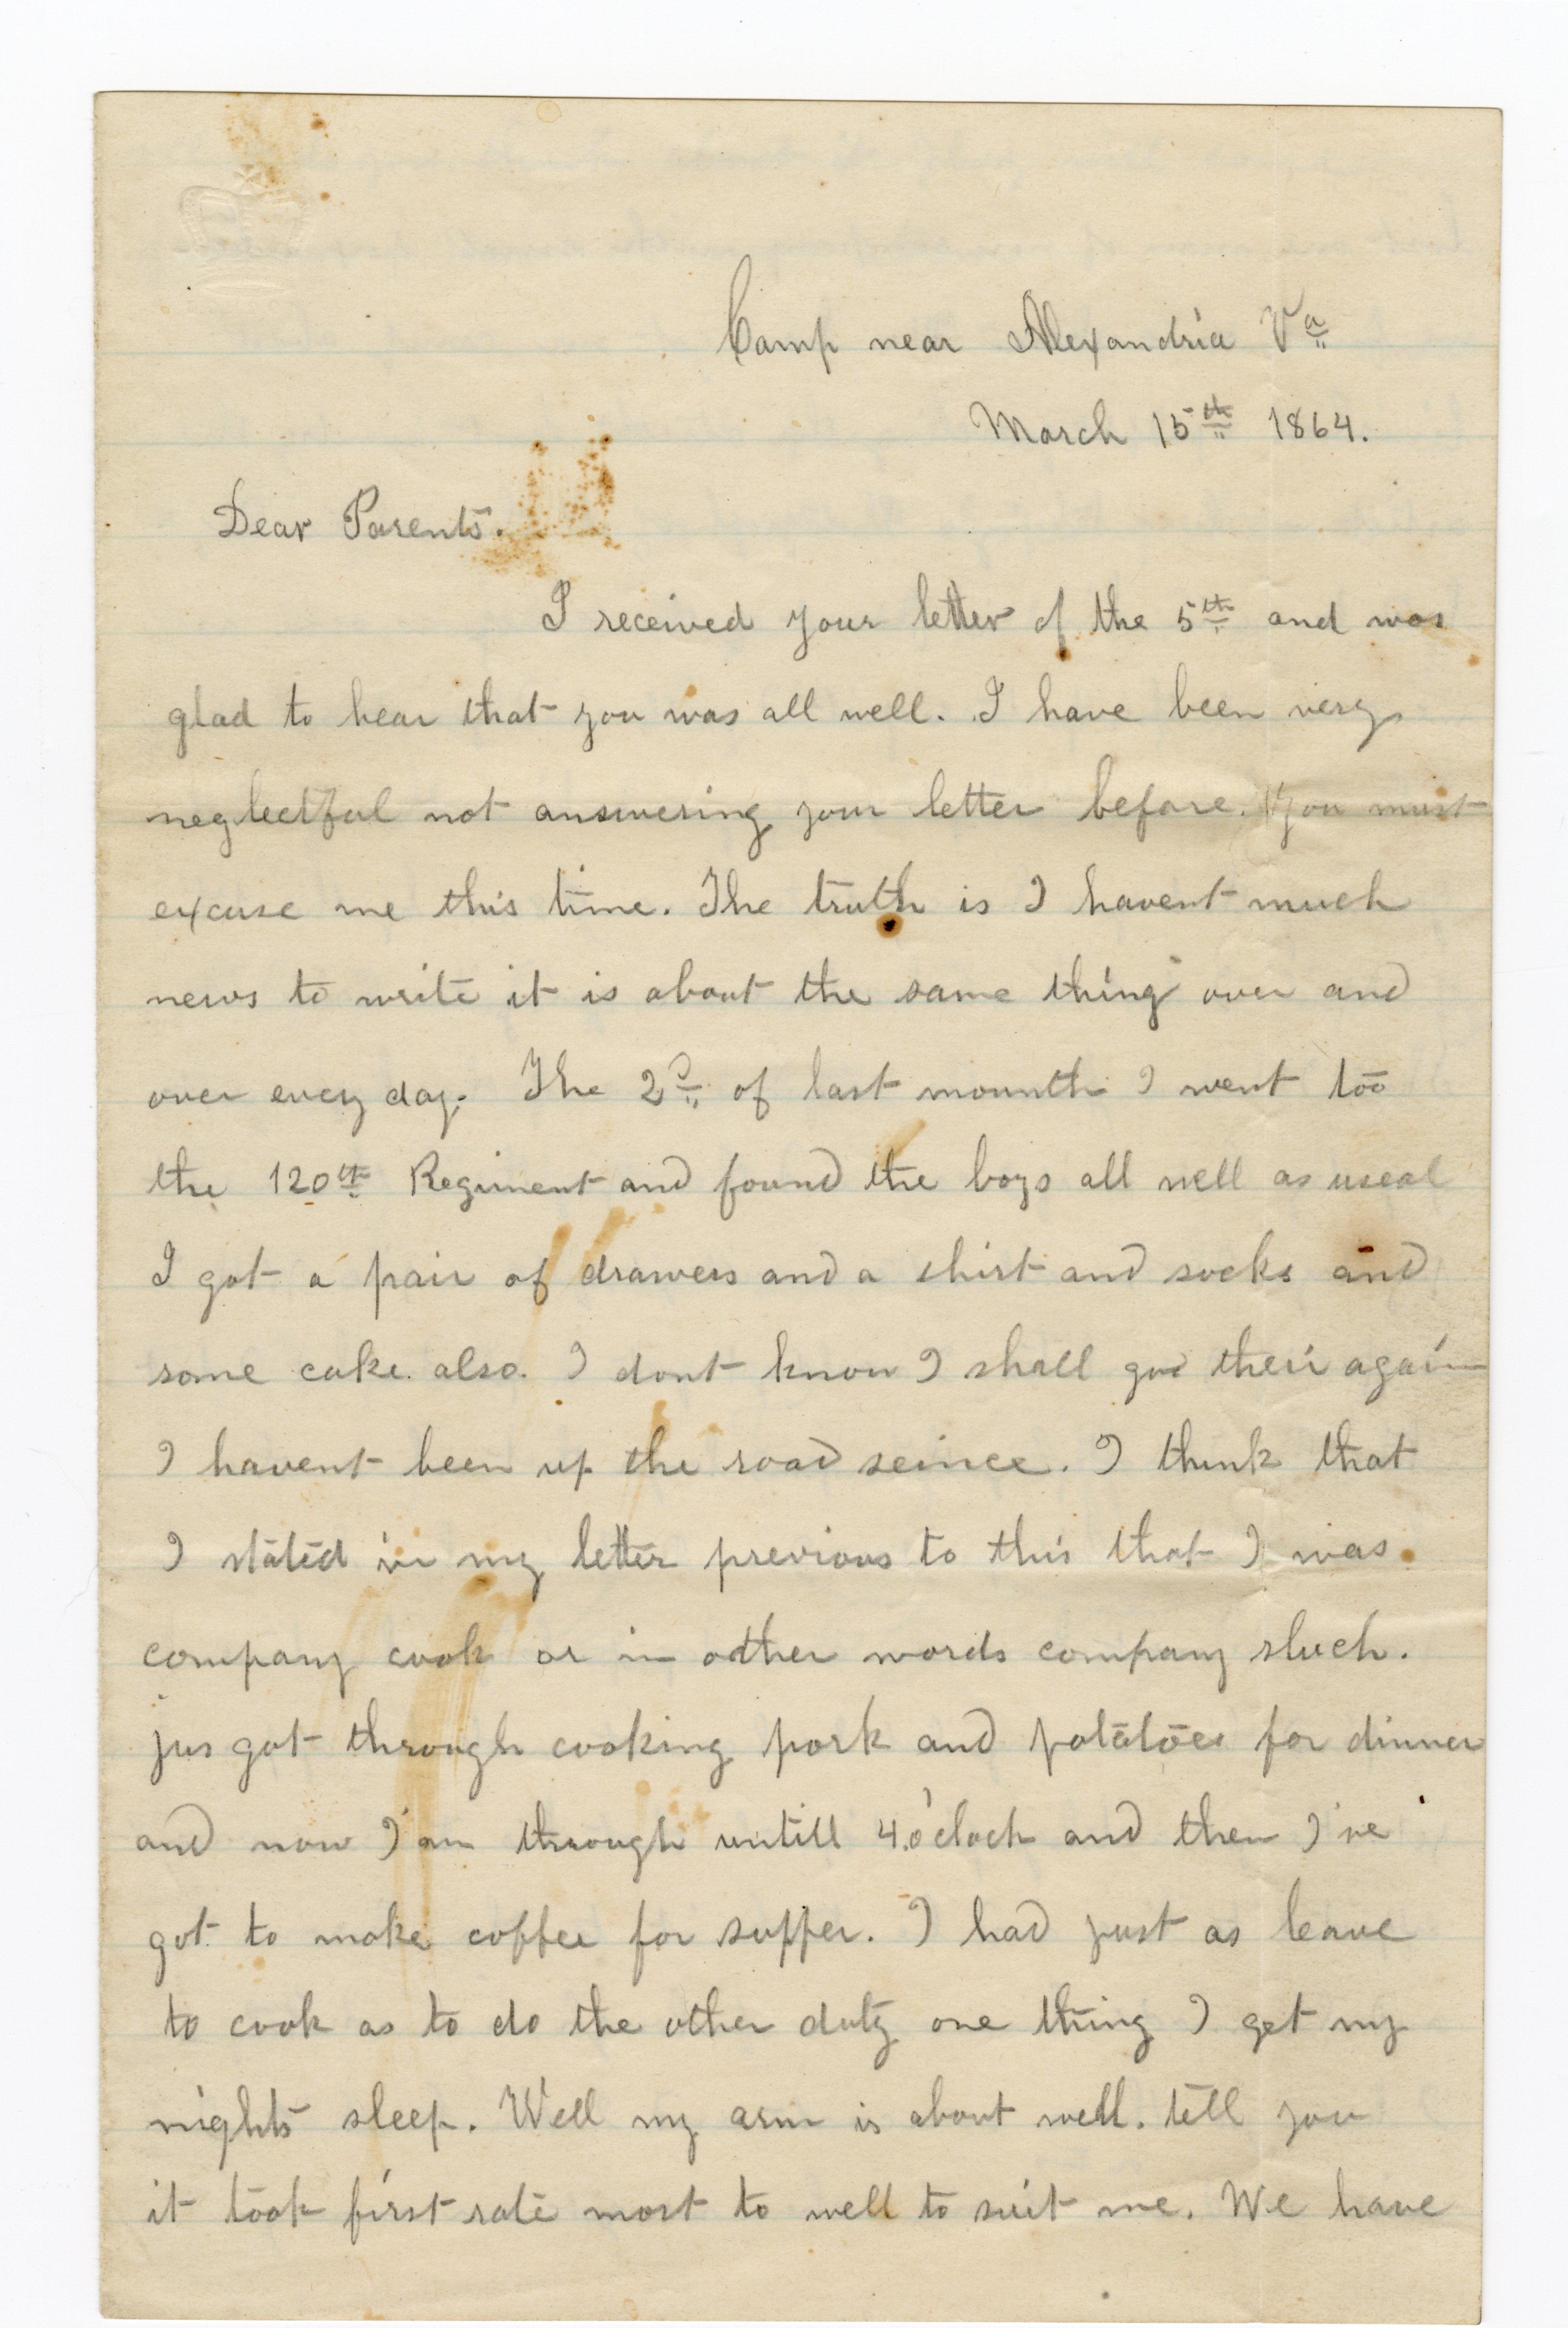 Camp near Alexandria Va
March 15th 1864.
Dear Parents.
I received your letter of the 5th and was
glad to hear that you was all well. I have been very
neglectful not answering your letter before. you must
excuse me this time. The truth is I havent much
news to write it is about the same thing over and
over every day. The 2d of last mounth I went too
the 120th Regiment and found the boys all well as useal
I got a pair of drawers and a shirt and socks and
some cake also. I dont know I shall goe their again
I havent been up the road seince. I think that
I stated in my letter previous to this that I was
company cook or in other words company sluch.
jus got through cooking pork and potatoes for dinner
and now I'am through untill 4.o'clock and then I've
got to make coffee for supper. I had just as leave
to cook as to do the other duty one thing I get my
nights sleep. Well my arm is about well. tell you
it took first rate most to well to suit me. We have